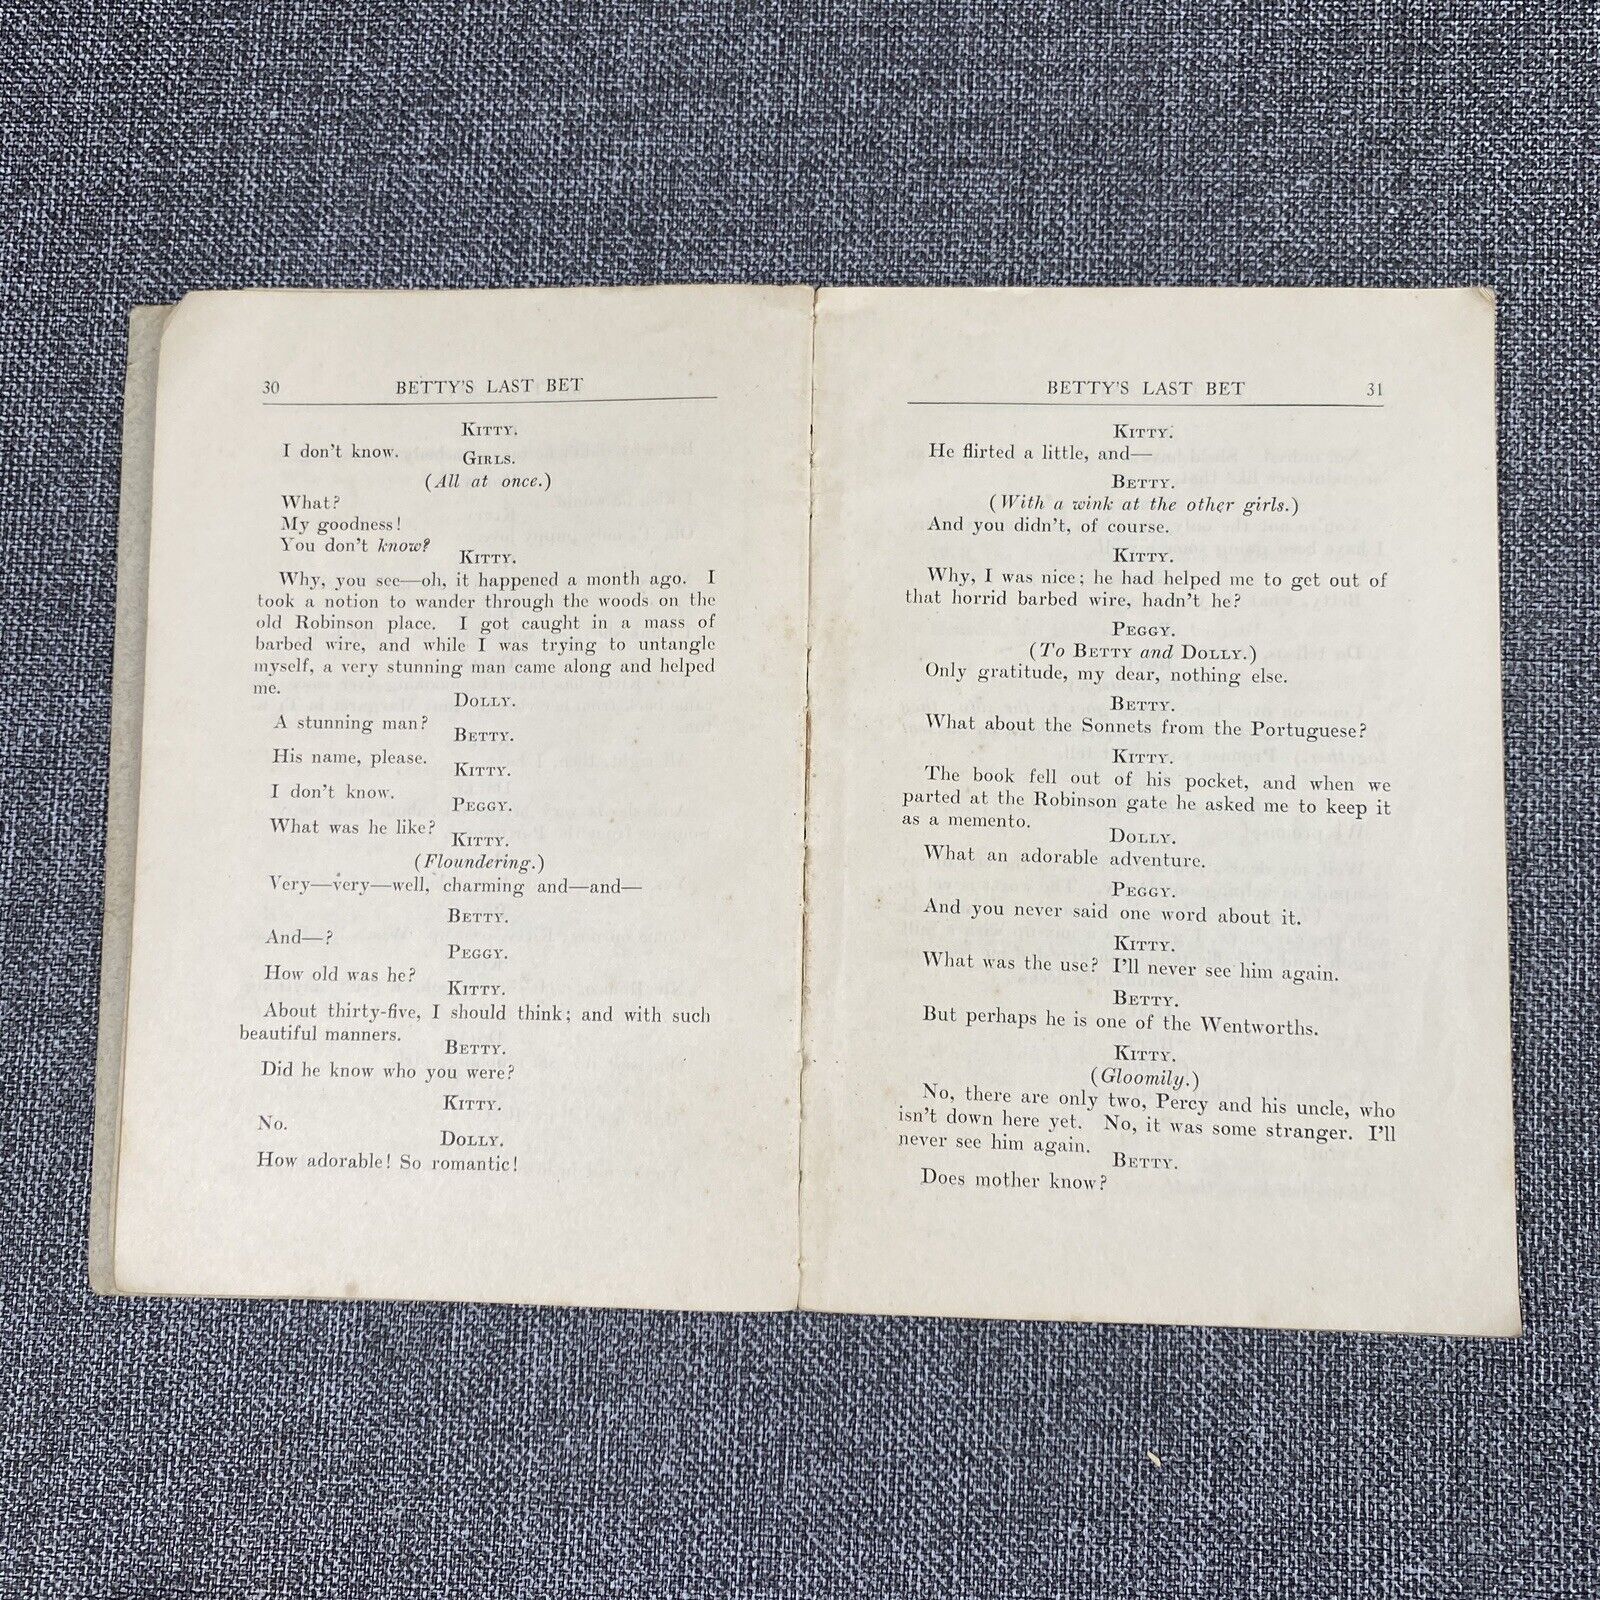 30 BETTY'S LAST BET
KITTY.
I don't know.
GIRLS.
(All at once.)
What?
My goodness!
You don't know?
KITTY.
Why, you see—oh, it happened a month ago. I
took a notion to wander through the woods on the
old Robinson place. I got caught in a mass of
barbed wire, and while I was trying to untangle
myself, a very stunning man came along and helped
me.
DOLLY.
A stunning man?
BETTY.
His name, please.
KITTY.
I don't know.
PEGGY.
What was he like?
KITTY.
(Floundering.)
Very—very—well, charming and—and—
BETTY.
And—?
PEGGY.
How old was he?
KITTY.
About thirty-five, I should think; and with such
beautiful manners.
BETTY.
Did he know who you were?
KITTY.
No.
DOLLY.
How adorable! So romantic!
BETTY'S LAST BET 31
KITTY.
He flirted a little, and—
BETTY.
(With a wink at the other girls.)
And you didn't, of course.
KITTY.
Why, I was nice; he had helped me to get out of
that horrid barbed wire, hadn't he?
PEGGY.
(To BETTY and DOLLY.)
Only gratitude, my dear, nothing else.
BETTY.
What about the Sonnets from the Portuguese?
KITTY.
The book fell out of his pocket, and when we
parted at the Robinson gate he asked me to keep it
as a memento.
DOLLY.
What an adorable adventure.
PEGGY.
And you never said one word about it.
KITTY.
What was the use? I'll never see him again.
BETTY.
But perhaps he is one of the Wentworths.
KITTY.
(Gloomily.)
No, there are only two, Percy and his uncle, who
isn't down here yet. No, it was some stranger. I'll
never see him again.
BETTY.
Does mother know?